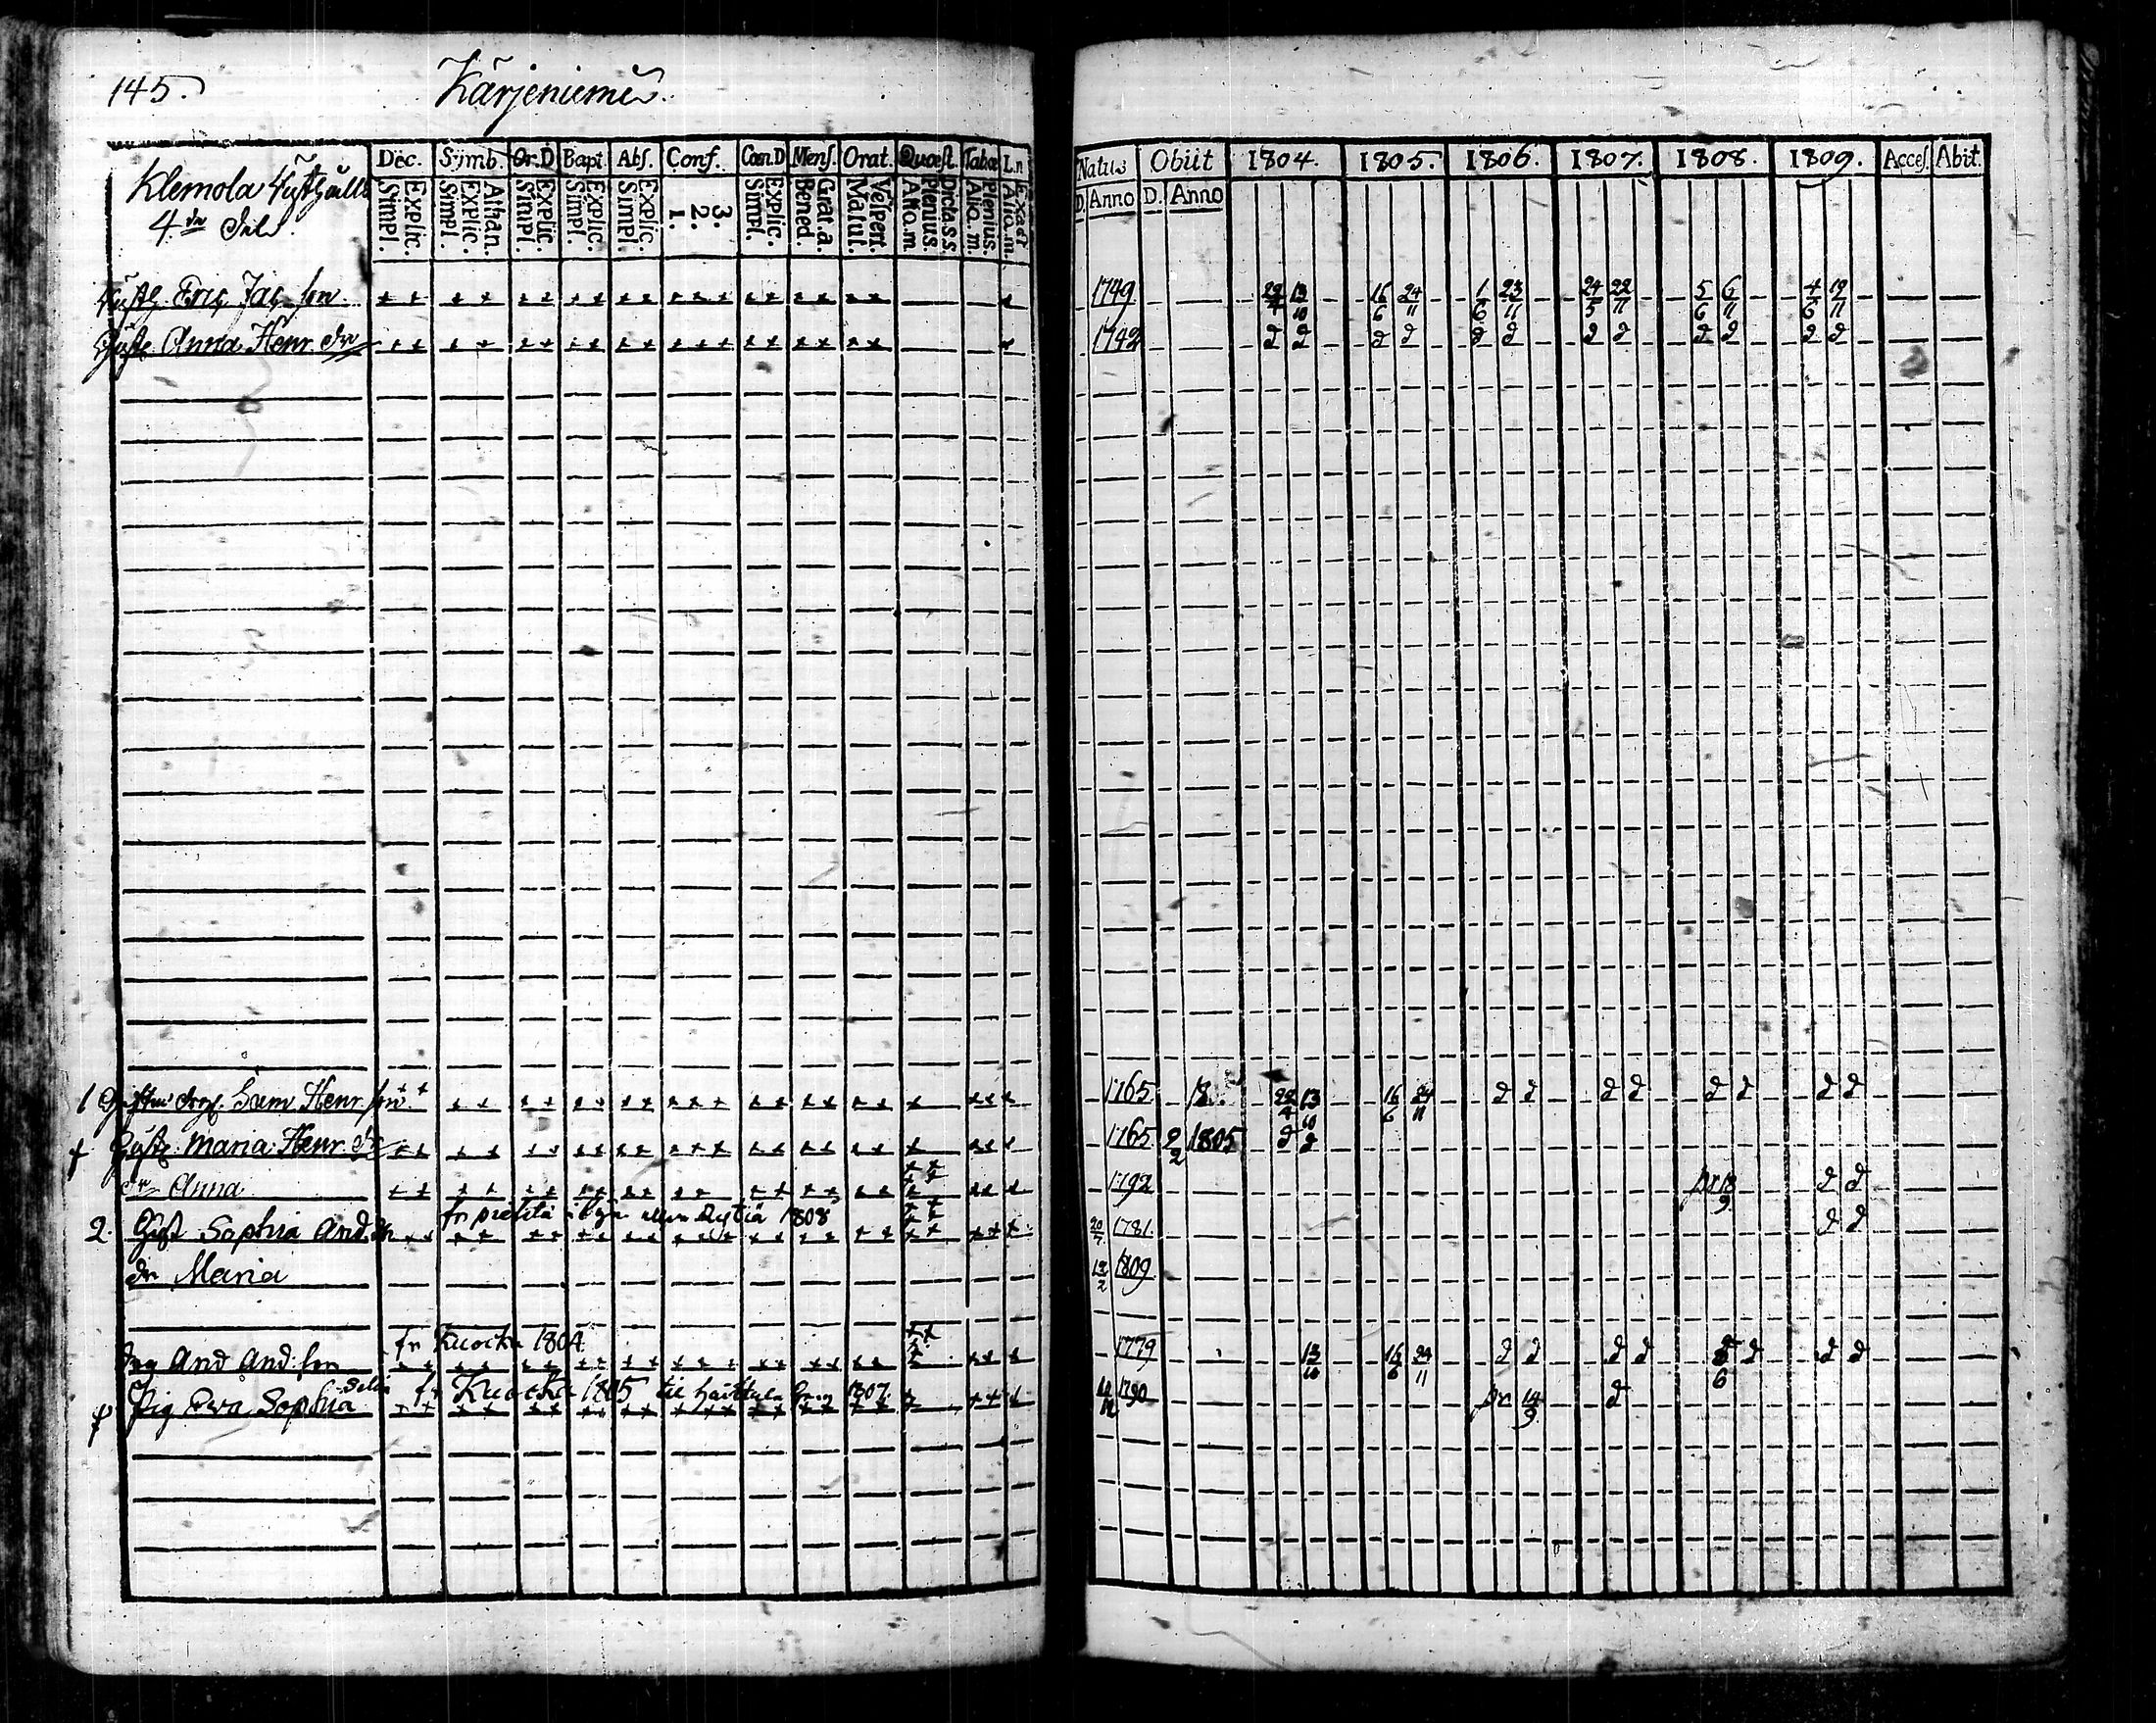 145. Kärjeniemi.
Klemola
4 de Del
Dec. Symb. Or.D Bapt. Abs. Conf. Cœn.D Mens. Orat. Quæst. Tabæ L.n
Explic. Simpl. Athan. Explic. Simpl. Explic. Simpl. Explic. Simpl. Explic. Simpl. 3. 2. 1. Explic. Simpl. Grat.a. Bened. Vespert. Matut. Dicta.s.s. Plenius. Alio.m. Plenius. Alio.m. Exact Alio.m.
Natus Obiit 1804. 1805. 1806. 1807. 1808. 1809. Acces. Abit.
D. Anno D. Anno
Eric Jac son 1749 22/4 13/10 16/6 24/11 1/6 23/11 24/5 22/11 5/6 6/11 4/6 19/11
Anna Henr dr 1742 d d d d d d d d d d d d
1 Sam Henr son 1765 22/4 13/10 16/6 24/11 d d d d d d d d
Maria Henr dr 1765 2/2 1805 d d
dr Anna 1792 d d
fr 1808
2. Sophia And dr 1781 d d
dr Maria 1809
fr Kuocka 1804
drg And And son 1779 13/10 16/6 24/11 d d d d d d d
Pig Eva Sophia fr Kuocka 1805 til 1807. 1790 d